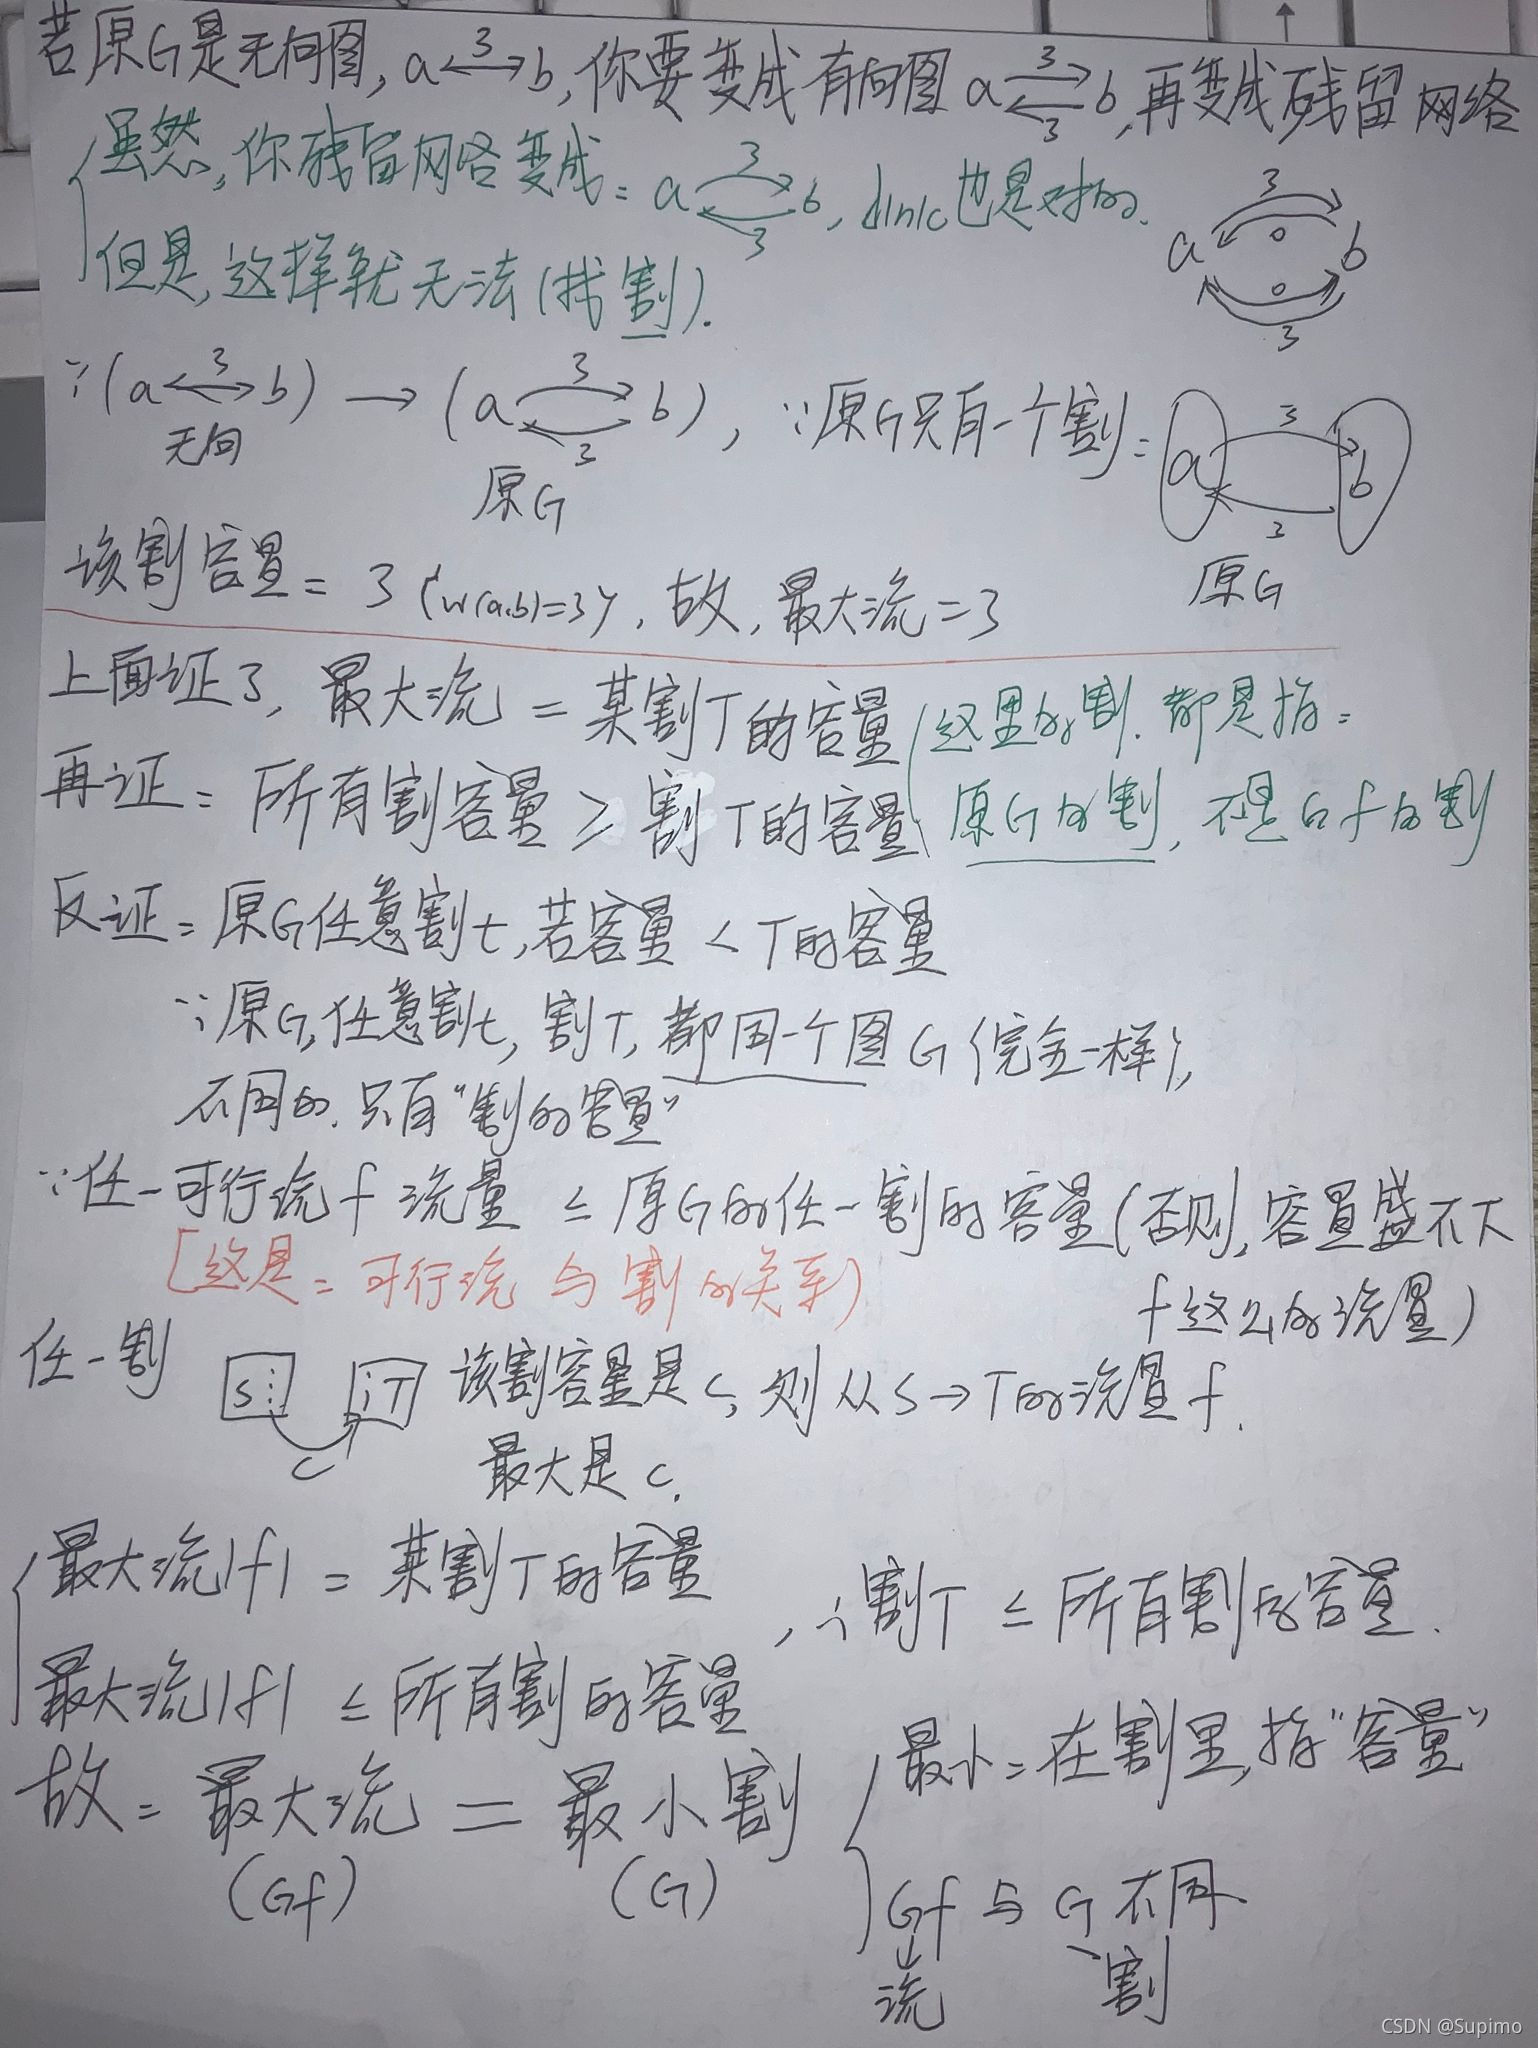 若原G是无向图, a 3 b, 你要变成有向图 a 3 3 b, 再变成残留网络
虽然, 你残留网络变成: a 3 3 b, dinic也是对的.
a 3 0 0 3 b
但是, 这样就无法(找割).
∵(a 3 b) → (a 3 3 b), ∵原G只有一个割: a 3 3 b
无向
原G
原G
该割容量 = 3 (w(a,b)=3), 故, 最大流=3
上面证了, 最大流 = 某割T的容量 (这里的割. 都是指:
再证: 所有割容量 ≥ 割T的容量 原G的割, 不是Gf的割
反证: 原G任意割t, 若容量 < T的容量
∵原G, 任意割t, 割T, 都同一个图G(完全一样),
不同的. 只有"割的容量"
∵任一可行流f 流量 ≤ 原G的任一割的容量(否则, 容量盛不下
[这是: 可行流 与 割的关系)
f这么的流量)
任一割 S T C 该割容量是c, 则从S→T的流量f.
最大是c.
最大流|f| = 某割T的容量
, ∴割T ≤ 所有割的容量.
最大流|f| ≤ 所有割的容量
最小: 在割里, 指"容量"
故: 最大流 = 最小割
(Gf) (G)
Gf 与 G 不同
流 割
CSDN @Supimo